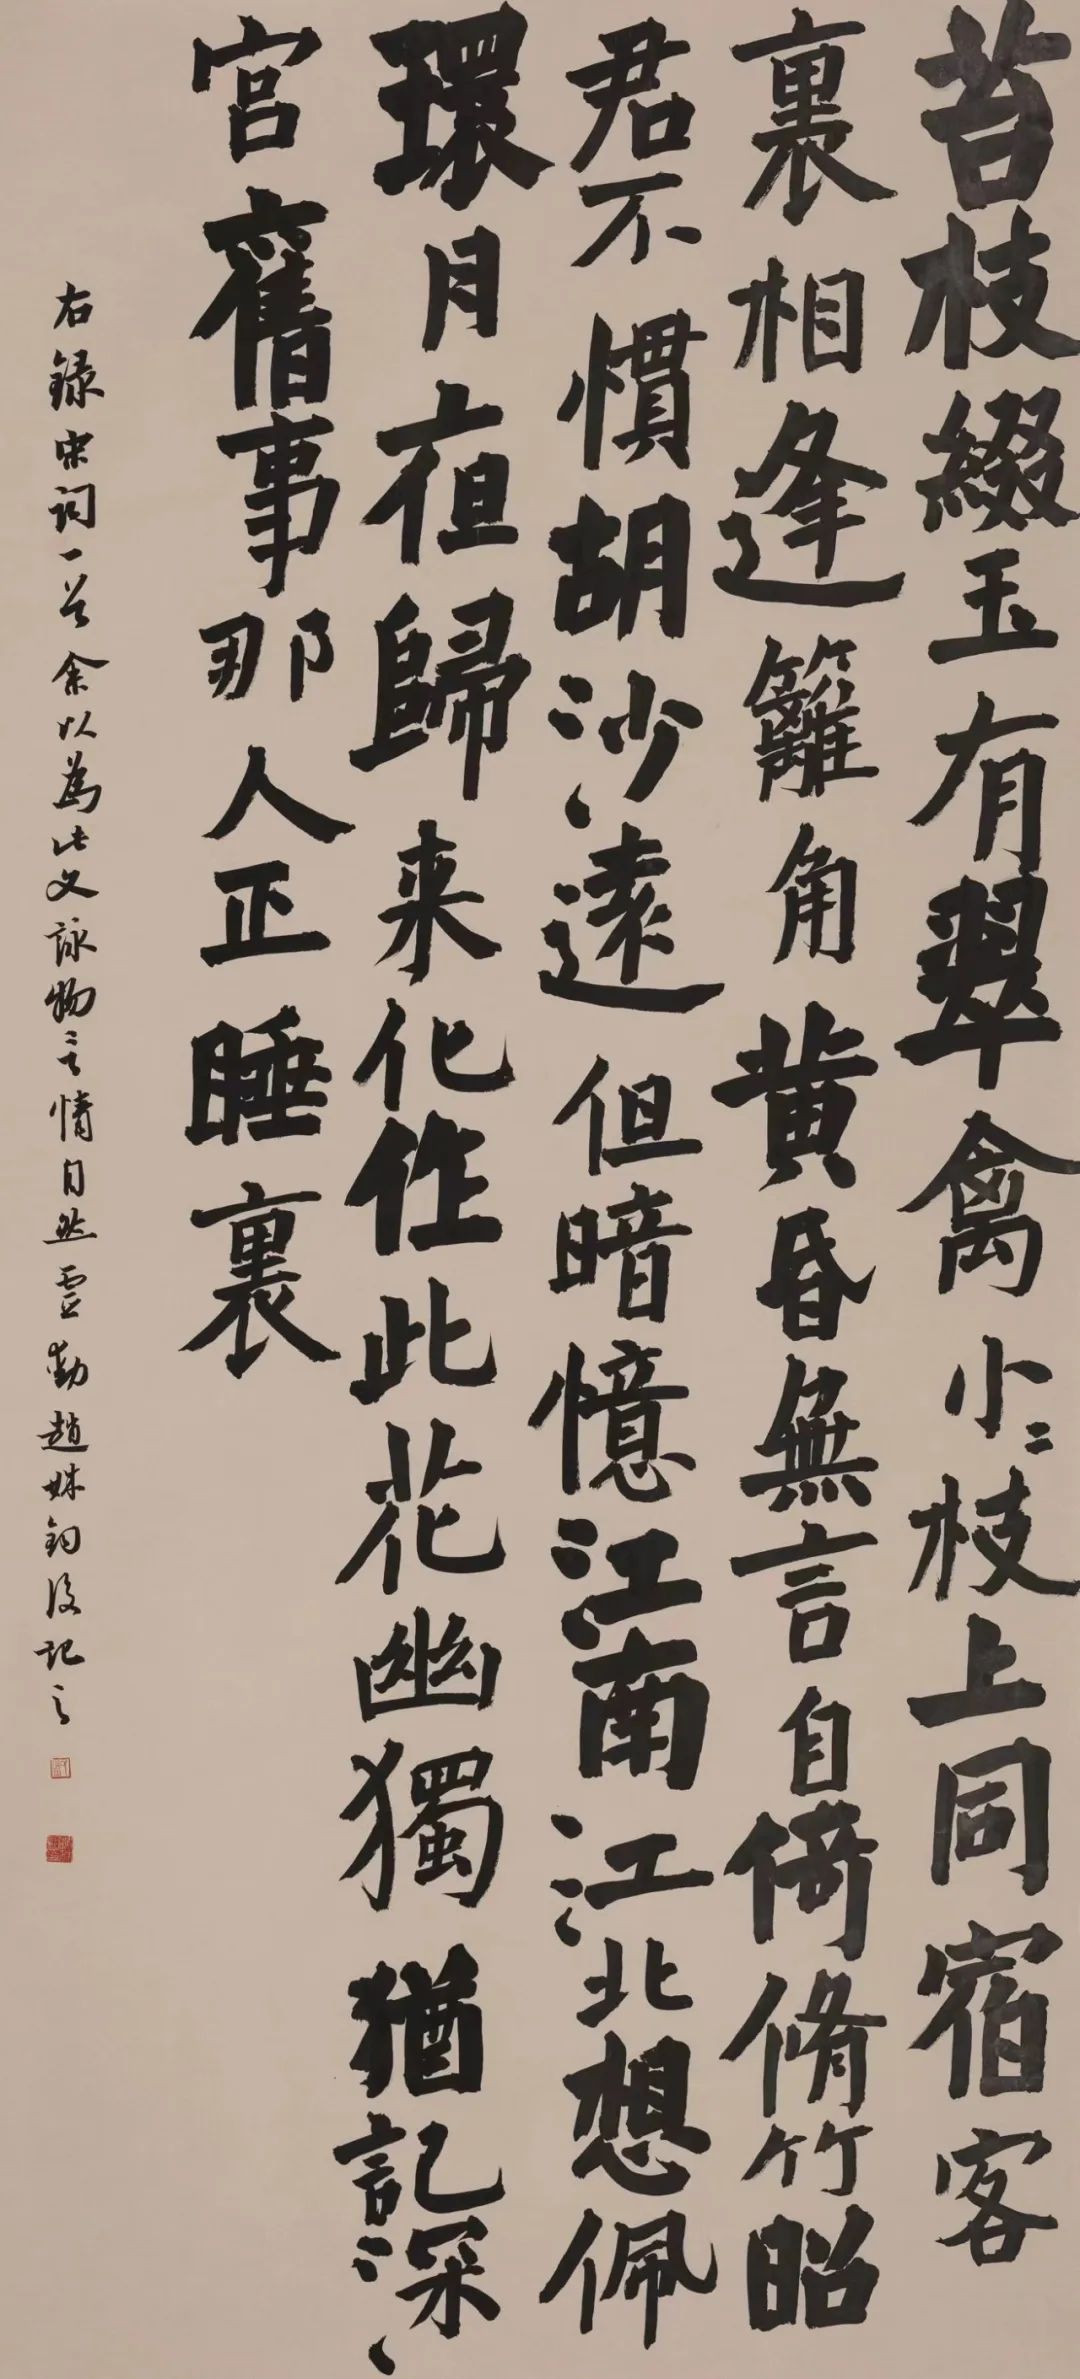 苔枝綴玉有翠禽小〻枝上同宿客
裏相逢籬角黄昏無言自倚脩竹昭
君不慣胡沙遠但暗憶江南江北想佩
環月夜歸来化作此花幽獨猶記深
宮舊事那人正睡裏
右錄宋詞一首余以為此文詠物言情自然靈動趙姝鈞後記之